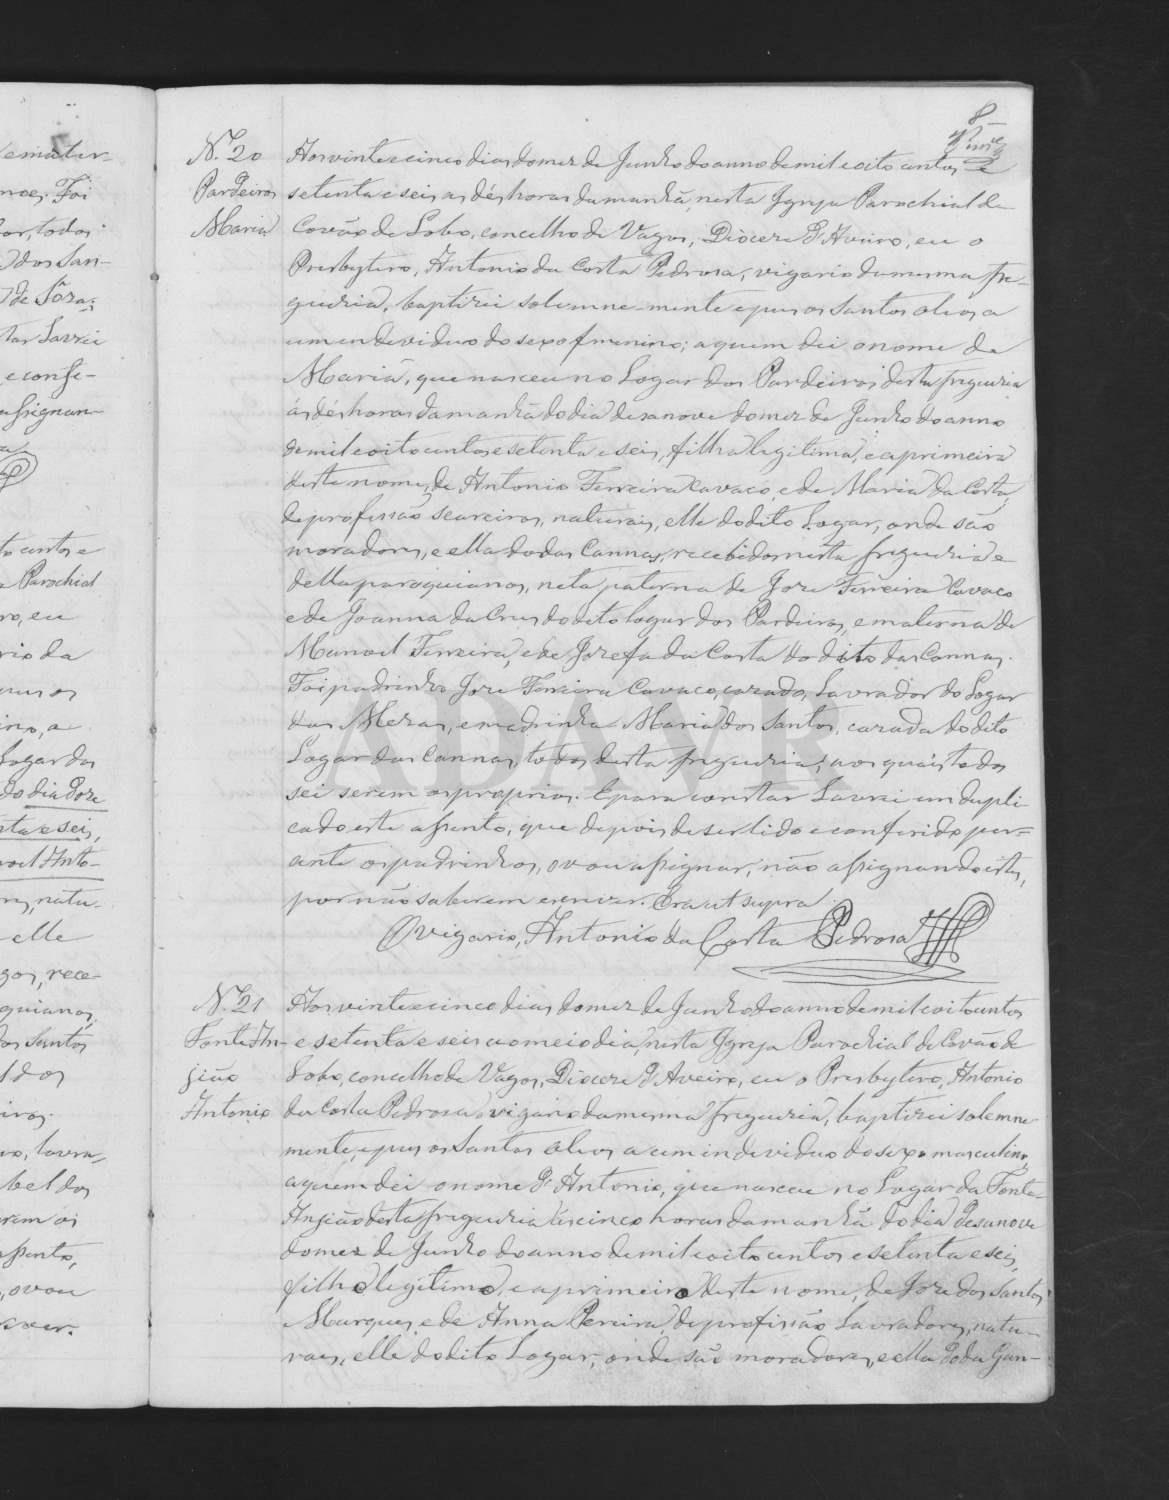 8
N.º 20
Pardeiros
Maria
Aos vinte e cinco dias do mez de Junho do anno de mil e oito centos e
setenta e seis as déshoras da manhã, nesta Igreja Parochial de
Covão de Lobo, concelho de Vagos, Diocere d'Aveiro, eu o
Presbytero, Antonio da Costa Pedrosa, vigario da mesma fre-
guezia, baptizei solemne-mente e puz os Santos oleos a
um endeviduo do sexo feminino; a quem dei o nome de
Maria, que nasceu no Logar dos Pardeiros desta freguezia
ás déshoras da manhã do dia desanove do mez de Junho do anno
de mil e oito centos e setenta e seis, filha legitima, e a primeira
deste nome, de Antonio Ferreira Cavaco, e de Maria da Costa,
de profissão seareiros, naturais, elle do dito Logar, onde são
moradores, e ella do das Cannas, recebidos nesta freguezia e
della paroquianos, neta paterna de Joze Ferreira Cavaco
e de Joanna da Crus do dito logar dos Pardeiros, e materna de
Manoel Ferreira, e de Jozefa da Costa do dito das Cannas.
Foi padrinho Joze Ferreira Cavaco, cazado, Lavrador do Logar
das Mezas, e madrinha Maria dos Santos, cazada do dito
Logar das Cannas, todos desta freguezia; aos quais todos
sei serem os proprios. E para constar Lavrei em dupli
cado este assento, que depois de ser lido e conferido per=
ante os padrinhos, o vou assignar, não assignando estes,
por não saberem escrever. Era ut supra.
O vigario, Antonio da Costa Pedrosa
N.º 21
Fonte An-
gião
Antonio
Aos vinte e cinco dias do mez de Junho do anno de mil e oito centos
e setenta e seis ao meio dia, nesta Igreja Parochial de Covão de
Lobo, concelho de Vagos, Diocere d'Aveiro, eu o Presbytero, Antonio
da Costa Pedrosa, vigario da mesma freguezia, baptizei solemne
mente, e puz os Santos Oleos a um indeviduo do sexo masculino,
a quem dei o nome d'Antonio, que nasceu no Logar da Fonte
Angião desta freguezia ás cinco horas da manhã do dia desanove
do mez de Junho do anno de mil e oito centos e setenta e seis,
filho legitimo, e a primeiro deste nome, de Joze dos Santos
Marques, e de Anna Pereira, de profissão Lavradores, natu-
raes, elle do dito Logar, onde são moradores, e ella do da Gan-
ADAVR